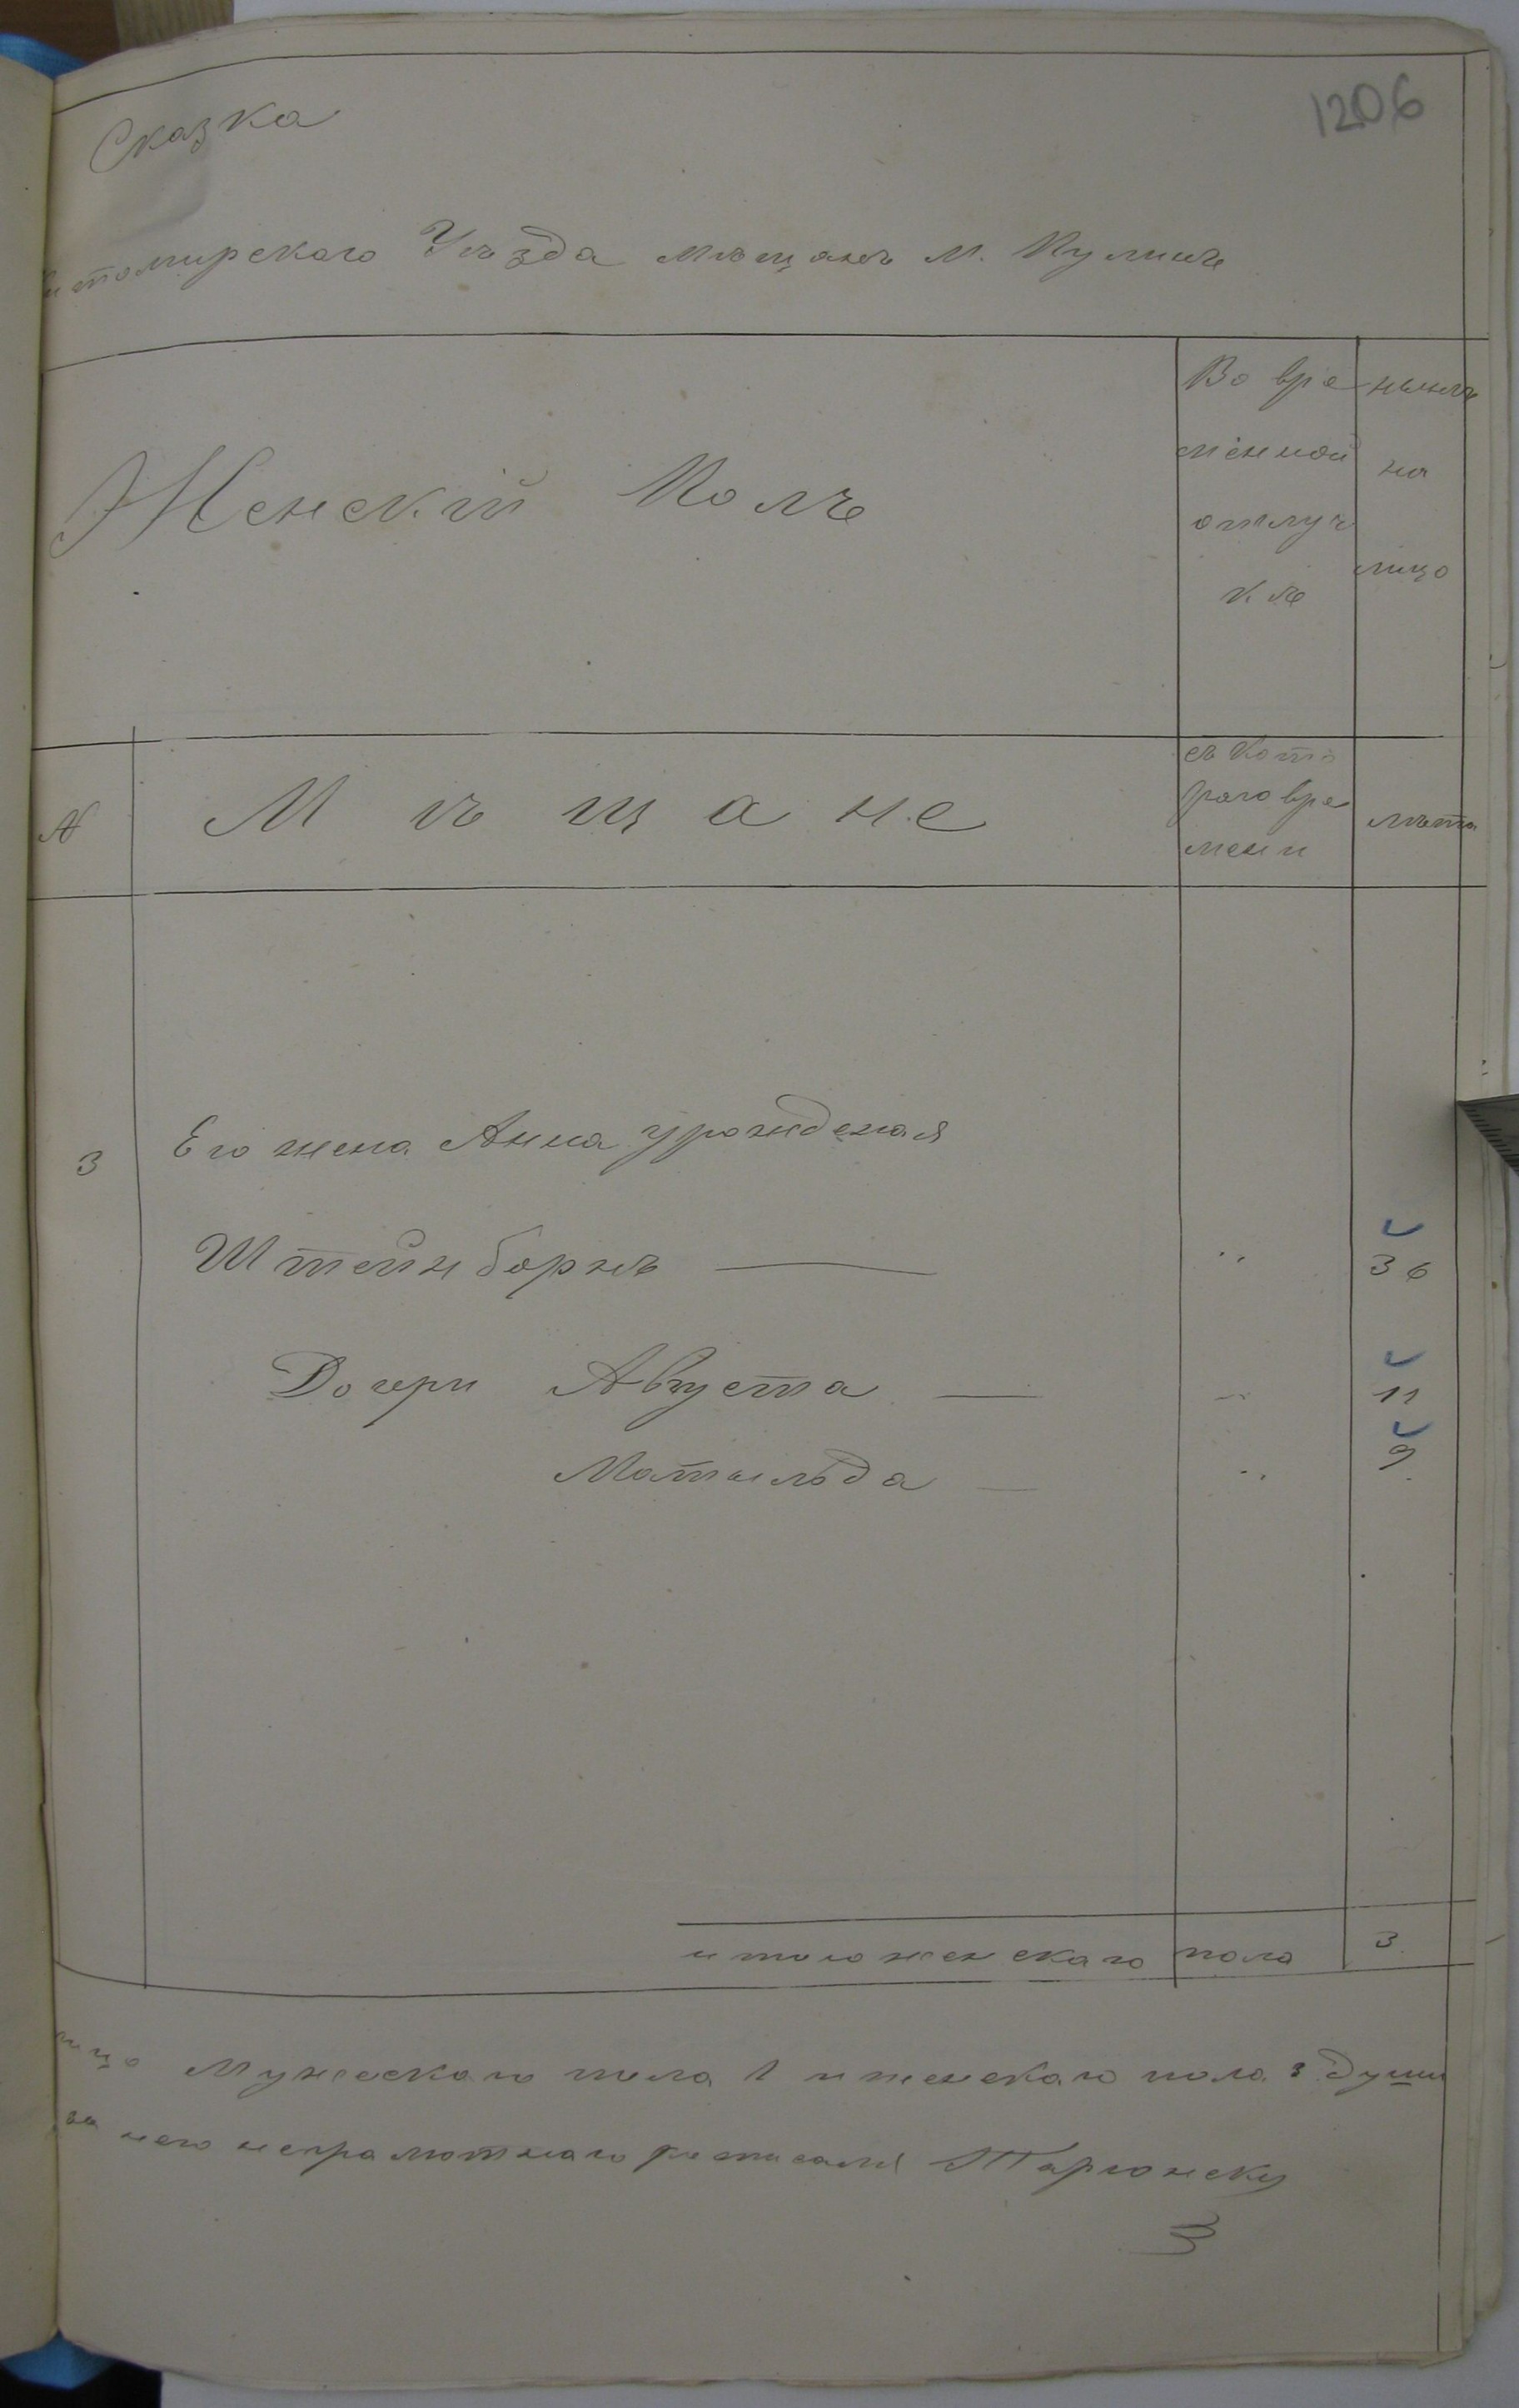 1206
Сказка
итомирскаго Уѣзда мѣщанъ м. Кулинѣ
Женскій Полъ
Во вре
менной
отлуч
кѣ
нынѣ
на
лицо
№
Мѣщане
съ кото
раго вре
мени
лѣта
3 Его жена Анна урожденая
Штейнборнъ — " 36
Дочери Августа — " 11
Матильда — " 9
итого женскаго пола 3
лицо Мужескаго пола 1 и женскаго пола 3 души
за него неграмотнаго росписался